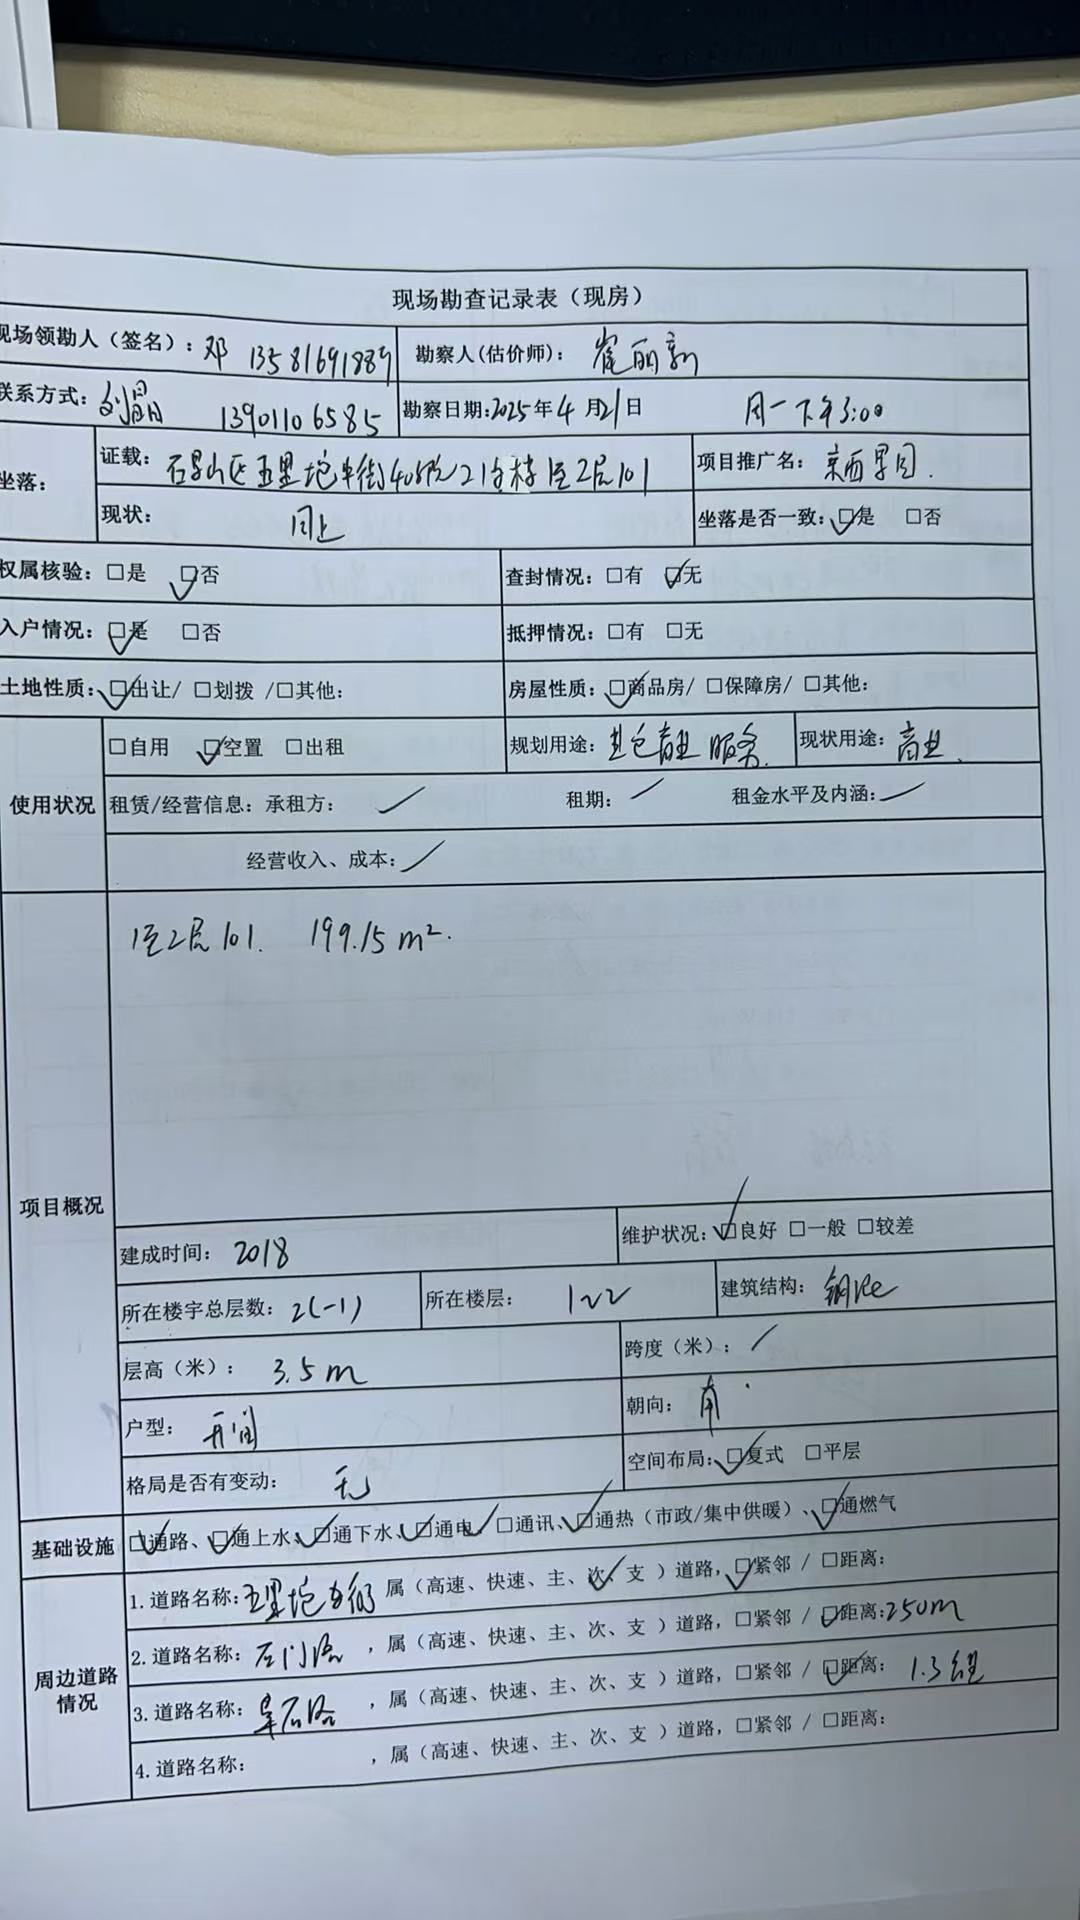 现场勘查记录表（现房）
现场领勘人（签名）：邓 13581691889 勘察人(估价师)：崔丽新
联系方式：刘晶 13901106585 勘察日期:2025年4月21日 周一下午3:00
坐落： 证载：石景山区五里坨 街 号院21号楼1至2层101 项目推广名：京西景园.
现状：同上 坐落是否一致：☑是 □否
权属核验：□是 ☑否 查封情况：□有 ☑无
入户情况：☑是 □否 抵押情况：□有 □无
土地性质：☑出让/ □划拨 /□其他： 房屋性质：☑商品房/ □保障房/ □其他：
使用状况 □自用 ☑空置 □出租 规划用途：其它商业服务. 现状用途：商业.
租赁/经营信息：承租方：／ 租期：／ 租金水平及内涵：／
经营收入、成本：／
项目概况 1至2层101. 199.15m².
建成时间：2018 维护状况：☑良好 □一般 □较差
所在楼宇总层数：2(-1) 所在楼层：1~2 建筑结构：钢混
层高（米）：3.5m 跨度（米）：／
户型：开间 朝向：南
格局是否有变动：无 空间布局：☑复式 □平层
基础设施 ☑通路、☑通上水、☑通下水、☑通电、□通讯、☑通热（市政/集中供暖）、☑通燃气
周边道路情况 1.道路名称：五里坨 街 属（高速、快速、主、次✓、支 ）道路，☑紧邻 / □距离：
2.道路名称：石门路 ，属（高速、快速、主、次、支 ）道路，□紧邻 / ☑距离：250m
3.道路名称：阜石路 ，属（高速、快速、主、次、支 ）道路，□紧邻 / ☑距离：1.3公里
4.道路名称： ，属（高速、快速、主、次、支 ）道路，□紧邻 / □距离：